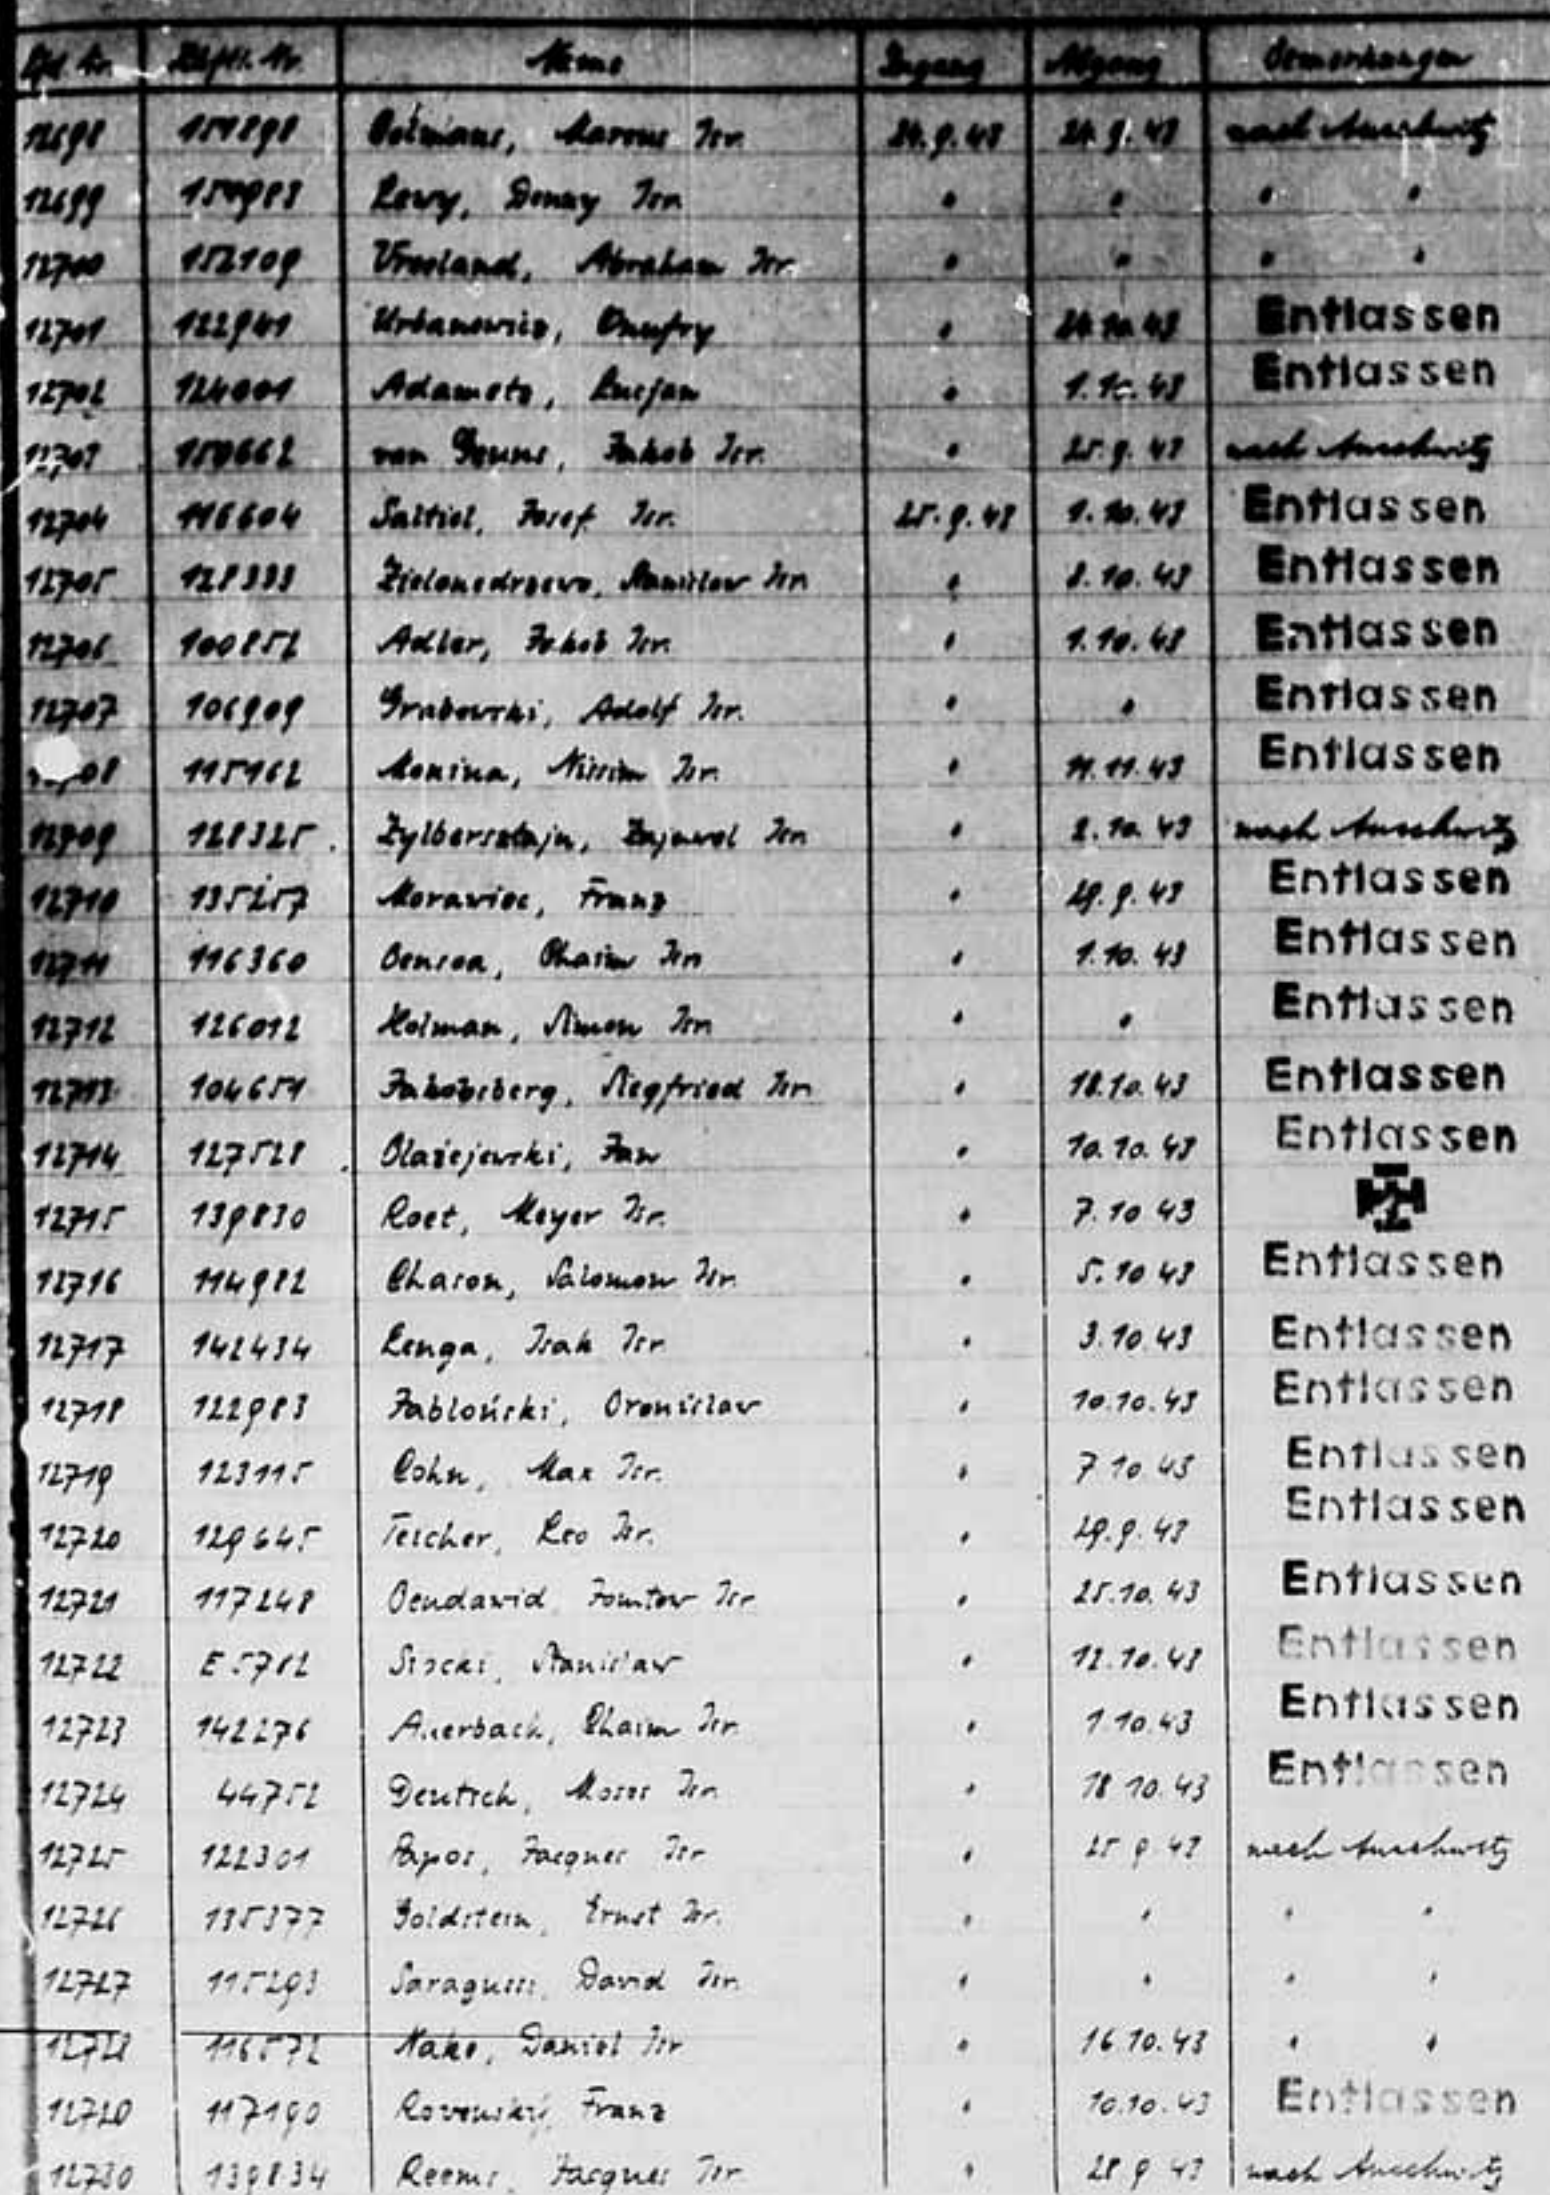 Lfd. Nr. Häftl. Nr. Name Zugang Abgang Bemerkungen
12698 151898 Marcus Isr. 24.9.43 24.9.43 nach Auschwitz
12699 Lewy, Denny Isr. " " " "
12700 152109 Vreeland, Abraham Isr. " " " "
12701 122941 Urbanowicz, Onufry " Entlassen
12702 124001 Adametz, Lucjan " 1.10.43 Entlassen
12703 150662 van Jakob Isr. " 25.9.43 nach Auschwitz
12704 116604 Saltiel, Josef Isr. 25.9.43 1.10.43 Entlassen
12705 128333 Zielonedrzewo, Stanislaw Isr. " 8.10.43 Entlassen
12706 100852 Adler, Jakob Isr. " 1.10.43 Entlassen
12707 106909 Grabowski, Adolf Isr. " " Entlassen
115162 Nissim Isr. " 11.11.43 Entlassen
12709 128325 Zylbersztajn, Isr. " 2.10.43 nach Auschwitz
12710 135257 Morawiec, Franz " 29.9.43 Entlassen
12711 116360 Benroa, Chaim Isr. " 1.10.43 Entlassen
12712 126012 Holman, Simon Isr. " " Entlassen
12713 104651 Jakobsberg, Siegfried Isr. " 18.10.43 Entlassen
12714 127528 Błażejewski, Jan " 10.10.43 Entlassen
12715 139830 Roet, Meyer Isr. " 7.10.43
12716 114982 Charon, Salomon Isr. " 5.10.43 Entlassen
12717 142434 Lenga, Isak Isr. " 3.10.43 Entlassen
12718 122983 Jabłoński, Bronislaw " 10.10.43 Entlassen
12719 123115 Cohn, Max Isr. " 7.10.43 Entlassen
12720 129645 Teicher, Leo Isr. " 29.9.43 Entlassen
12721 117248 Bendawid, Jomtow Isr. " 25.10.43 Entlassen
12722 E5782 Stanislaw " 12.10.43 Entlassen
12723 142276 Auerbach, Chaim Isr. " 1.10.43 Entlassen
12724 44752 Deutsch, Moses Isr. " 18.10.43 Entlassen
12725 122301 Papos, Jacques Isr. " 25.9.43 nach Auschwitz
12726 135377 Goldstein, Ernst Isr. " " " "
12727 115293 Saragussi, David Isr. " " " "
12728 116572 Nako, Daniel Isr. " 16.10.43 " "
117190 Rovenský, Franz " 10.10.43 Entlassen
12730 139834 Reems, Jacques Isr. " 28.9.43 nach Auschwitz